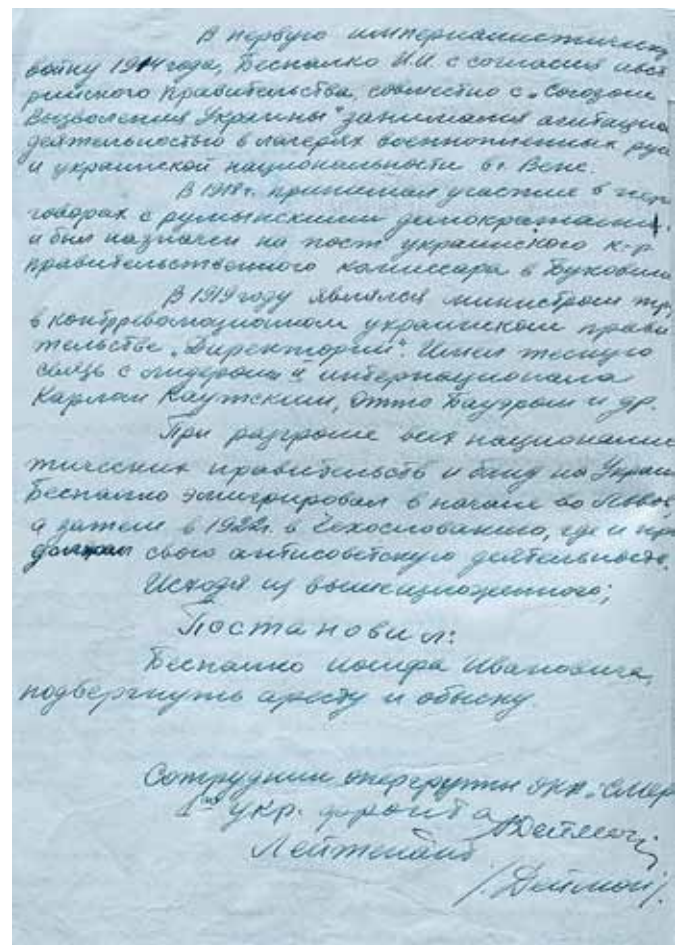 В первую империалистическ
войну 1914 года, Беспалко И.И. с согласия авст
рийского правительства, совместно с „Союзом
Вызволения Украины" занимался агитацио
деятельностью в лагерях военнопленных рус
и украинской национальности в г. Вене.
В 1918 г. принимал участие в пере
говорах с румынскими демократами
и был назначен на пост украинского к-р
правительственного комиссара в Буковине
В 1919 году являлся министром тр,
в контрреволюционном украинском прави
тельстве „Директории". Имел тесную
связь с лидерами интернационала
Карлом Каутским, Отто Бауэром и др.
При разгроме всех националис
тических правительств и банд на Украи
Беспалко эмигрировал в начале во Львов,
а затем в 1922 г. в Чехословакию, где и про
должал свою антисоветскую деятельность.
Исходя из вышеизложенного;
Постановил:
Беспалко Иосифа Ивановича,
подвергнуть аресту и обыску.
Сотрудник опергруппы ОКР „Смер
1го укр. фронта
Лейтенант